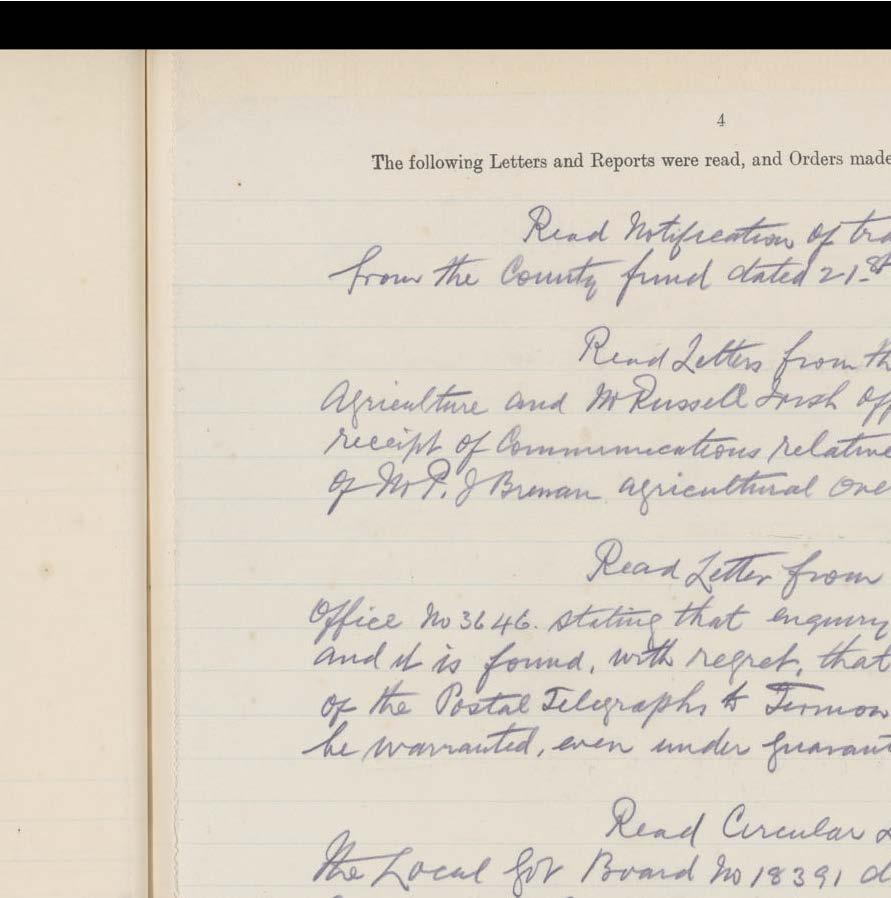 4
The following Letters and Reports were read, and Orders made
Read Notification of tra
from the County fund dated 21st
Read Letters from th
Agriculture and Mr Russell Irish Off
receipt of Communications relative
of Mr P. J Brenan agricultural Ove
Read Letter from
Office No 3646. stating that enquiry
and it is found, with regret, that
of the Postal Telegraphs to Termon
be warranted, even under guarant
Read Circular L
the Local Gov Board No 18391 d